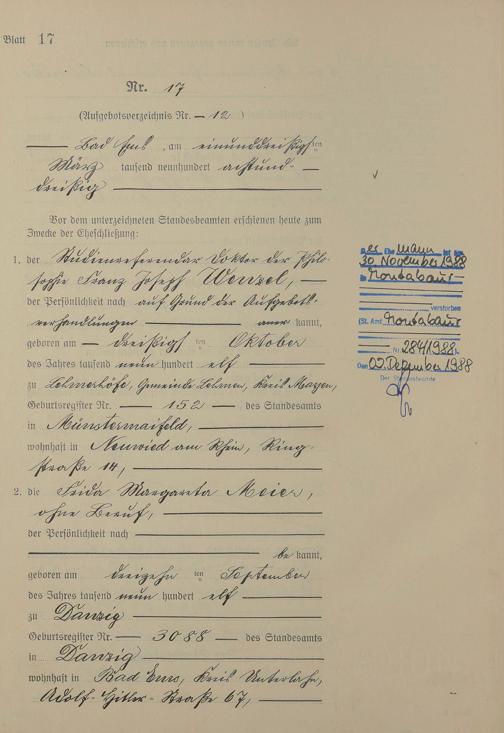 Blatt 17
Nr. 17
(Aufgebotsverzeichnis Nr. — 12 )
Bad Ems, am einunddreißigsten
März tausend neunhundert achtund-
dreißig
Vor dem unterzeichneten Standesbeamten erschienen heute zum
Zwecke der Eheschließung:
1. der Studienreferendar Doktor der Philo-
sophie Franz Joseph Wenzel, —
der Persönlichkeit nach auf Grund der Aufgebots-
verhandlungen — aner kannt,
geboren am — dreißigst ten Oktober
des Jahres tausend neun hundert elf —
zu Lehmerhöfe, Gemeinde Lehmen, Kreis Mayen,
Geburtsregister Nr. — 152 — des Standesamts
in Münstermaifeld,
wohnhaft in Neuwied am Rhein, Ring-
straße 14,
2. die Frida Margareta Meier,
ohne Beruf,
der Persönlichkeit nach
be kannt,
geboren am dreizehn ten September
des Jahres tausend neun hundert elf
zu Danzig
Geburtsregister Nr. — 3088 — des Standesamts
in Danzig
wohnhaft in Bad Ems, Kreis Unterlahn,
Adolf-Hitler-Straße 67,
Der Ehemann ist am
30. November 1988
in Montabaur
verstorben
(St. Amt Montabaur
Nr. 284/1988).
Den 02. Dezember 1988
Der Standesbeamte